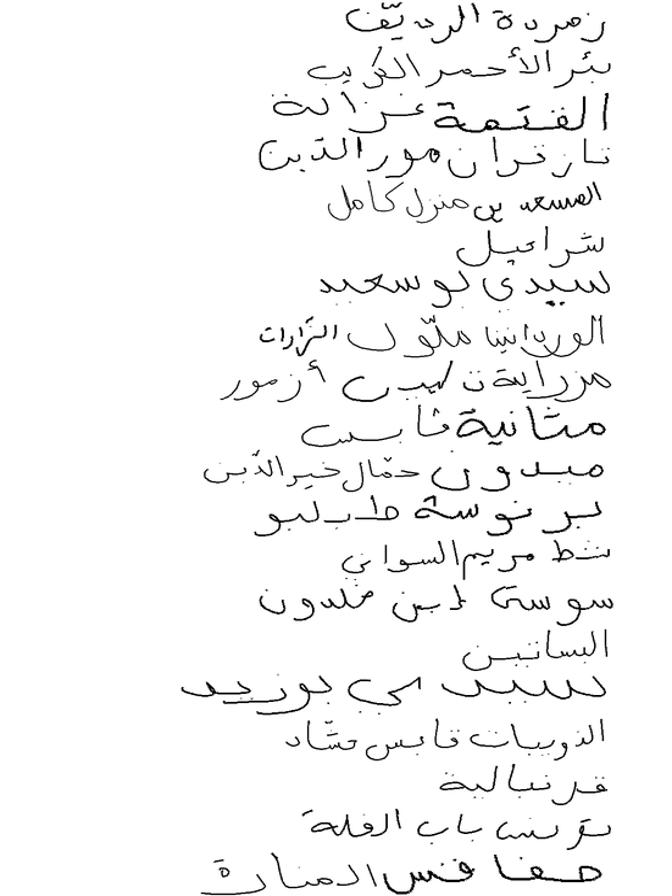 زمردة الرديّف
بئر الأحمر الغريب
القتمة غزالة
تازقران مور الدّين
المسعدين منزل كامل
شراحيل
سيدي بو سعيد
الوردانين ملّول الزّارات
مزراية تكلبن أزمور
عثمانية قابس
ميدون حمّال خير الدّين
برنوسة طبرلبو
شط مريم السواني
سوسة ابن خلدون
البساتين
سيدي بوزيد
الذويبات قابس حشّاد
قرنبالية
تونس باب الفلة
صفاقس المنارة